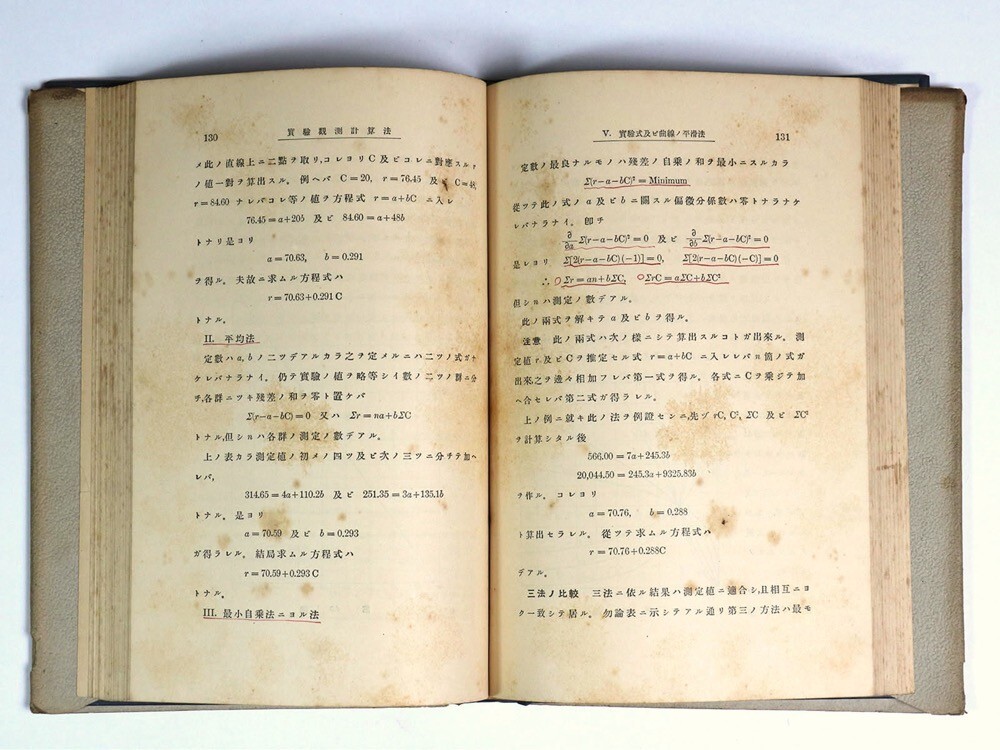 130
實驗觀測計算法
メ此ノ直線上ニ二點ヲ取リ,コレヨリ C 及ビコレニ對應スル r
ノ値一對ヲ算出スル。例ヘバ C=20, r=76.45 及ビ C=48,
r=84.60 ナレバコレ等ノ値ヲ方程式 r=a+bC ニ入レ
76.45=a+20b 及ビ 84.60=a+48b
トナリ是ヨリ
a=70.63, b=0.291
ヲ得ル。夫故ニ求ムル方程式ハ
r=70.63+0.291 C
トナル。
II. 平均法
定數ハ a, b ノ二ツデアルカラ之ヲ定メルニハ二ツノ式ガナ
ケレバナラナイ。仍テ實驗ノ値ヲ略等シイ數ノ二ツノ群ニ分
チ,各群ニツキ殘差ノ和ヲ零ト置ケバ
Σ(r−a−bC)=0 又ハ Σr=na+bΣC
トナル,但シ n ハ各群ノ測定ノ數デアル。
上ノ表カラ測定値ノ初メノ四ツ及ビ次ノ三ツニ分チテ加ヘ
レバ,
314.65=4a+110.2b 及ビ 251.35=3a+135.1b
トナル。是ヨリ
a=70.59 及ビ b=0.293
ガ得ラレル。結局求ムル方程式ハ
r=70.59+0.293 C
トナル。
III. 最小自乘法ニヨル法
V. 實驗式及ビ曲線ノ平滑法
131
定數ノ最良ナルモノハ殘差ノ自乘ノ和ヲ最小ニスルカラ
Σ(r−a−bC)²=Minimum
從ツテ此ノ式ノ a 及ビ b ニ關スル偏微分係數ハ零トナラナケ
レバナラナイ。卽チ
∂/∂a Σ(r−a−bC)²=0 及ビ ∂/∂b Σ(r−a−bC)²=0
是レヨリ Σ[2(r−a−bC)(−1)]=0, Σ[2(r−a−bC)(−C)]=0
∴ Σr=an+bΣC, ΣrC=aΣC+bΣC²
但シ n ハ測定ノ數デアル。
此ノ兩式ヲ解キテ a 及ビ b ヲ得ル。
注意 此ノ兩式ハ次ノ樣ニシテ算出スルコトガ出來ル。測
定値 r, 及ビ C ヲ推定セル式 r=a+bC ニ入レレバ n 箇ノ式ガ
出來之ヲ邊々相加フレバ第一式ヲ得ル。各式ニ C ヲ乘ジテ加
ヘ合セレバ第二式ガ得ラレル。
上ノ例ニ就キ此ノ法ヲ例證センニ,先ヅ rC, C², ΣC 及ビ ΣC²
ヲ計算シタル後
566.00=7a+245.3b
20,044.50=245.3a+9325.83b
ヲ作ル。コレヨリ
a=70.76, b=0.288
ト算出セラレル。從ツテ求ムル方程式ハ
r=70.76+0.288C
デアル。
三法ノ比較 三法ニ依ル結果ハ測定値ニ適合シ,且相互ニヨ
ク一致シテ居ル。勿論表ニ示シテアル通リ第三ノ方法ハ最モ